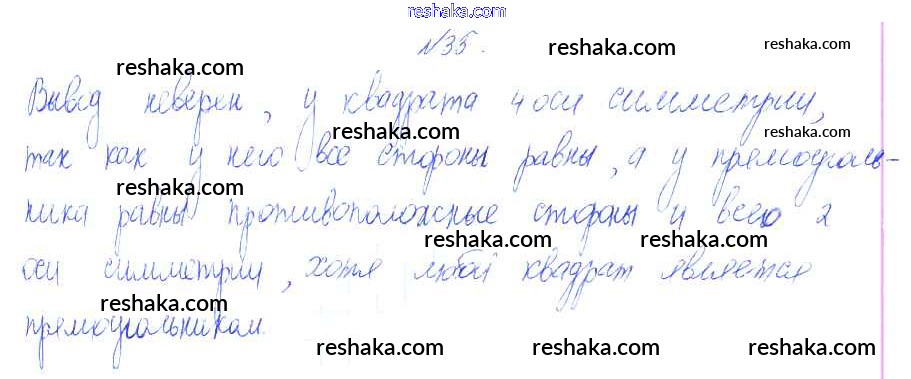 reshaka.com
№35. reshaka.com reshaka.com
reshaka.com
Вывод неверен, у квадрата 4 оси симметрии,
reshaka.com reshaka.com
так как у него все стороны равны, а у прямоуголь-
reshaka.com reshaka.com
ника равны противоположные стороны и всего 2
reshaka.com reshaka.com
оси симметрии, хотя любой квадрат является
reshaka.com
прямоугольником.
reshaka.com reshaka.com reshaka.com